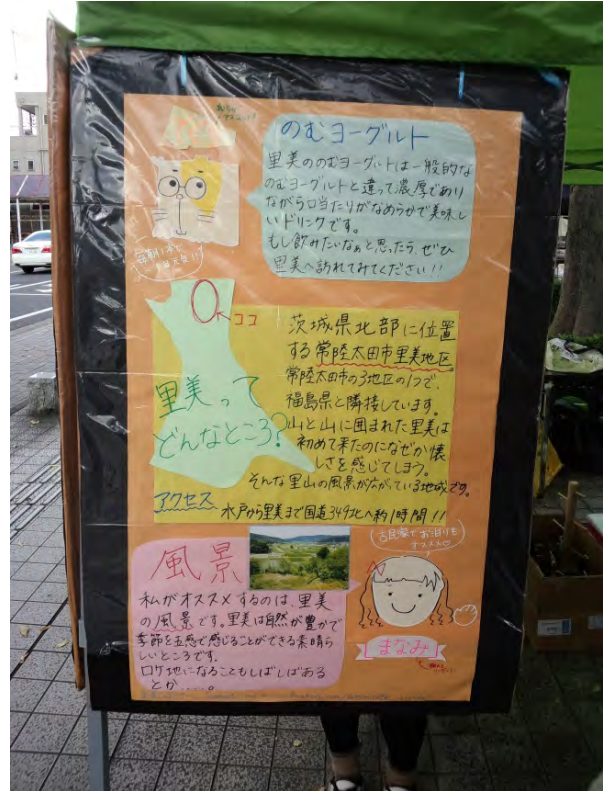 のむヨーグルト
里美ののむヨーグルトは一般的な
のむヨーグルトと違って濃厚であり
ながら口当たりがなめらかで美味し
いドリンクです。
もし飲みたいなぁと思ったら、ぜひ
里美へ訪れてみてください!!
ココ
里美って
どんなところ?
茨城県北部に位置
する常陸太田市里美地区。
常陸太田市の3地区の1つで、
福島県と隣接しています。
山と山に囲まれた里美は
初めて来たのになぜか懐
しさを感じてしまう。
そんな里山の風景が広がっている地域です。
アクセス
水戸から里美まで国道349北へ約1時間!!
古民家でお泊りも
オススメ
風景
私がオススメするのは、里美
の風景です。里美は自然が豊かで
季節を五感で感じることができる素晴ら
しいところです。
ロケ地になることもしばしばある
とか……。
まなみ